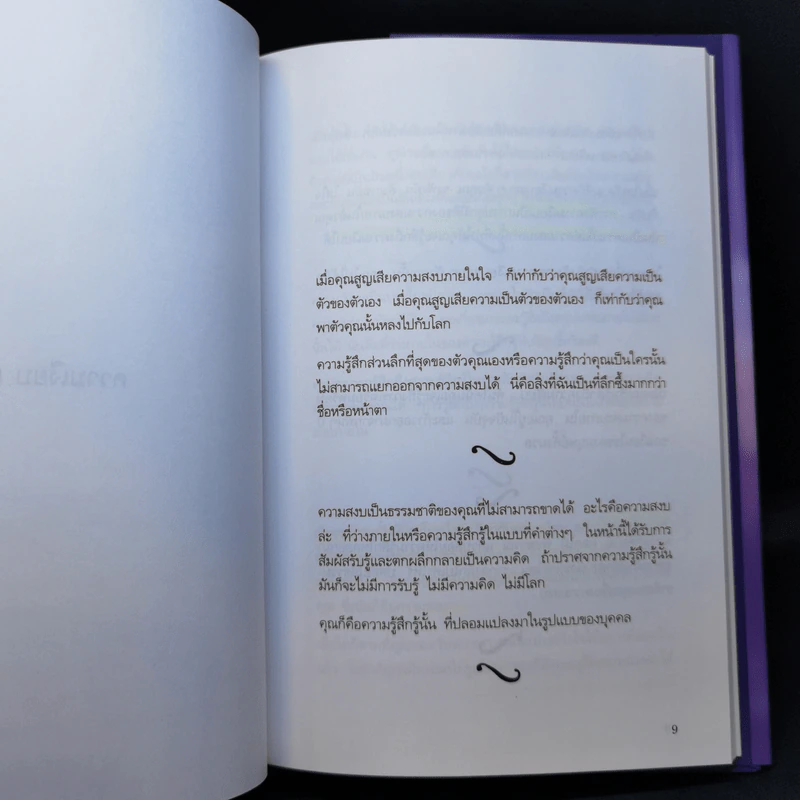 เมื่อคุณสูญเสียความสงบภายในใจ ก็เท่ากับว่าคุณสูญเสียความเป็น
ตัวของตัวเอง เมื่อคุณสูญเสียความเป็นตัวของตัวเอง ก็เท่ากับว่าคุณ
พาตัวคุณนั้นหลงไปกับโลก
ความรู้สึกส่วนลึกที่สุดของตัวคุณเองหรือความรู้สึกว่าคุณเป็นใครนั้น
ไม่สามารถแยกออกจากความสงบได้ นี่คือสิ่งที่ฉันเป็นที่ลึกซึ้งมากกว่า
ชื่อหรือหน้าตา
ความสงบเป็นธรรมชาติของคุณที่ไม่สามารถขาดได้ อะไรคือความสงบ
ล่ะ ที่ว่างภายในหรือความรู้สึกรู้ในแบบที่คำต่างๆ ในหน้านี้ได้รับการ
สัมผัสรับรู้และตกผลึกกลายเป็นความคิด ถ้าปราศจากความรู้สึกรู้นั้น
มันก็จะไม่มีการรับรู้ ไม่มีความคิด ไม่มีโลก
คุณก็คือความรู้สึกรู้นั้น ที่ปลอมแปลงมาในรูปแบบของบุคคล
9